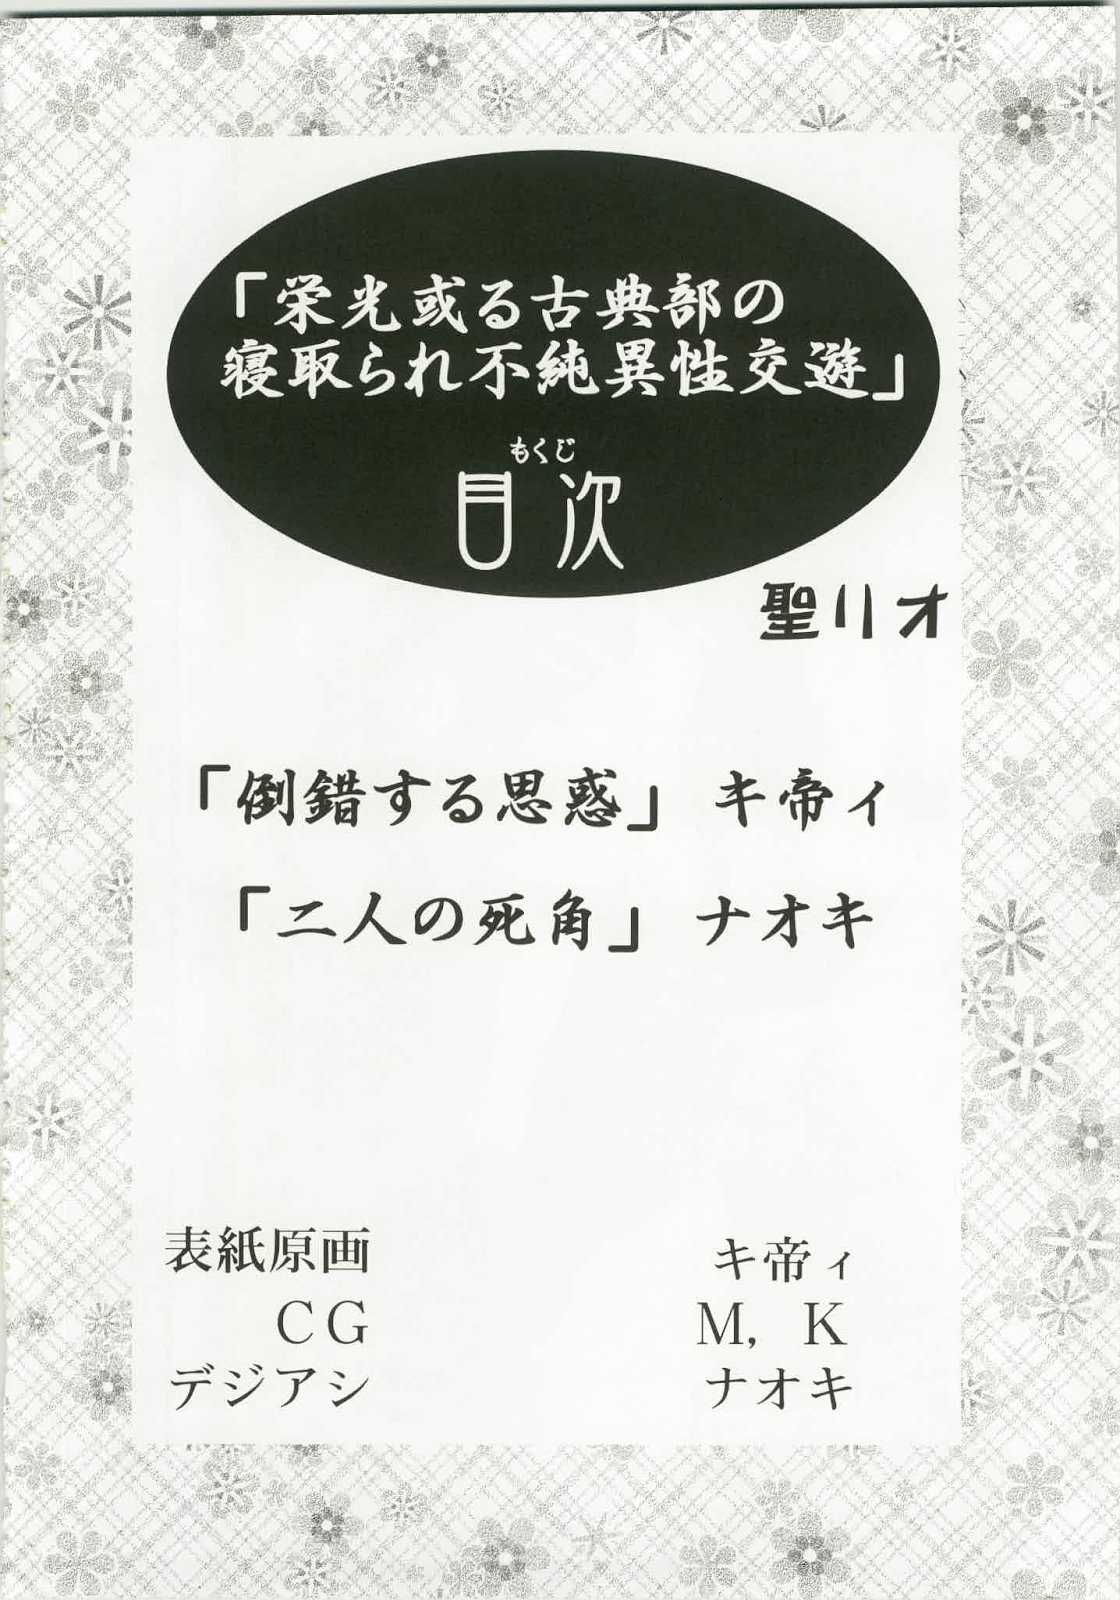 「栄光或る古典部の
寝取られ不純異性交遊」
もくじ
目次
聖リオ
「倒錯する思惑」 キ帝ィ
「二人の死角」 ナオキ
表紙原画 キ帝ィ
CG M, K
デジアシ ナオキ